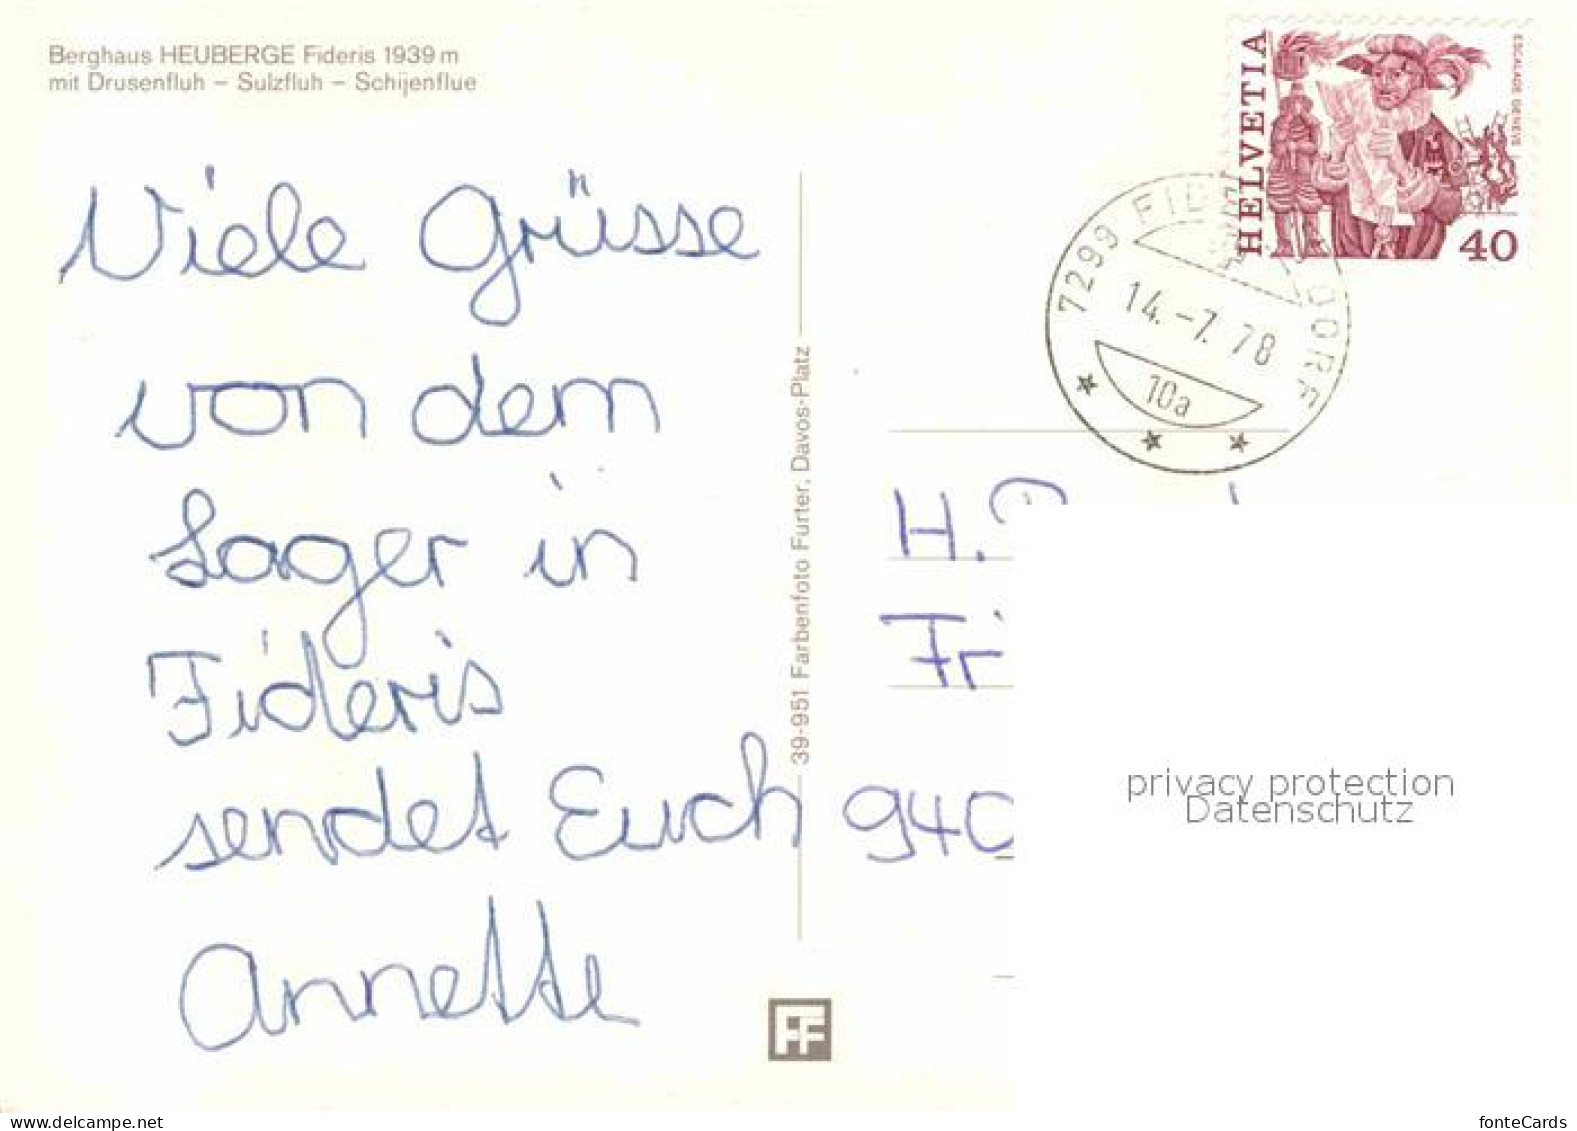 Berghaus HEUBERGE Fideris 1939 m
mit Drusenfluh – Sulzfluh – Schijenflue
HELVETIA
ESCALADE GENÈVE
40
7299 FID DORF
14.-7.78
10a
Viele Grüsse
von dem
Lager in
Fideris
sendet Euch
Annette
39-951 Farbenfoto Furter, Davos-Platz
FF
H.
Fr
940
privacy protection
Datenschutz
www.delcampe.net
fonteCards